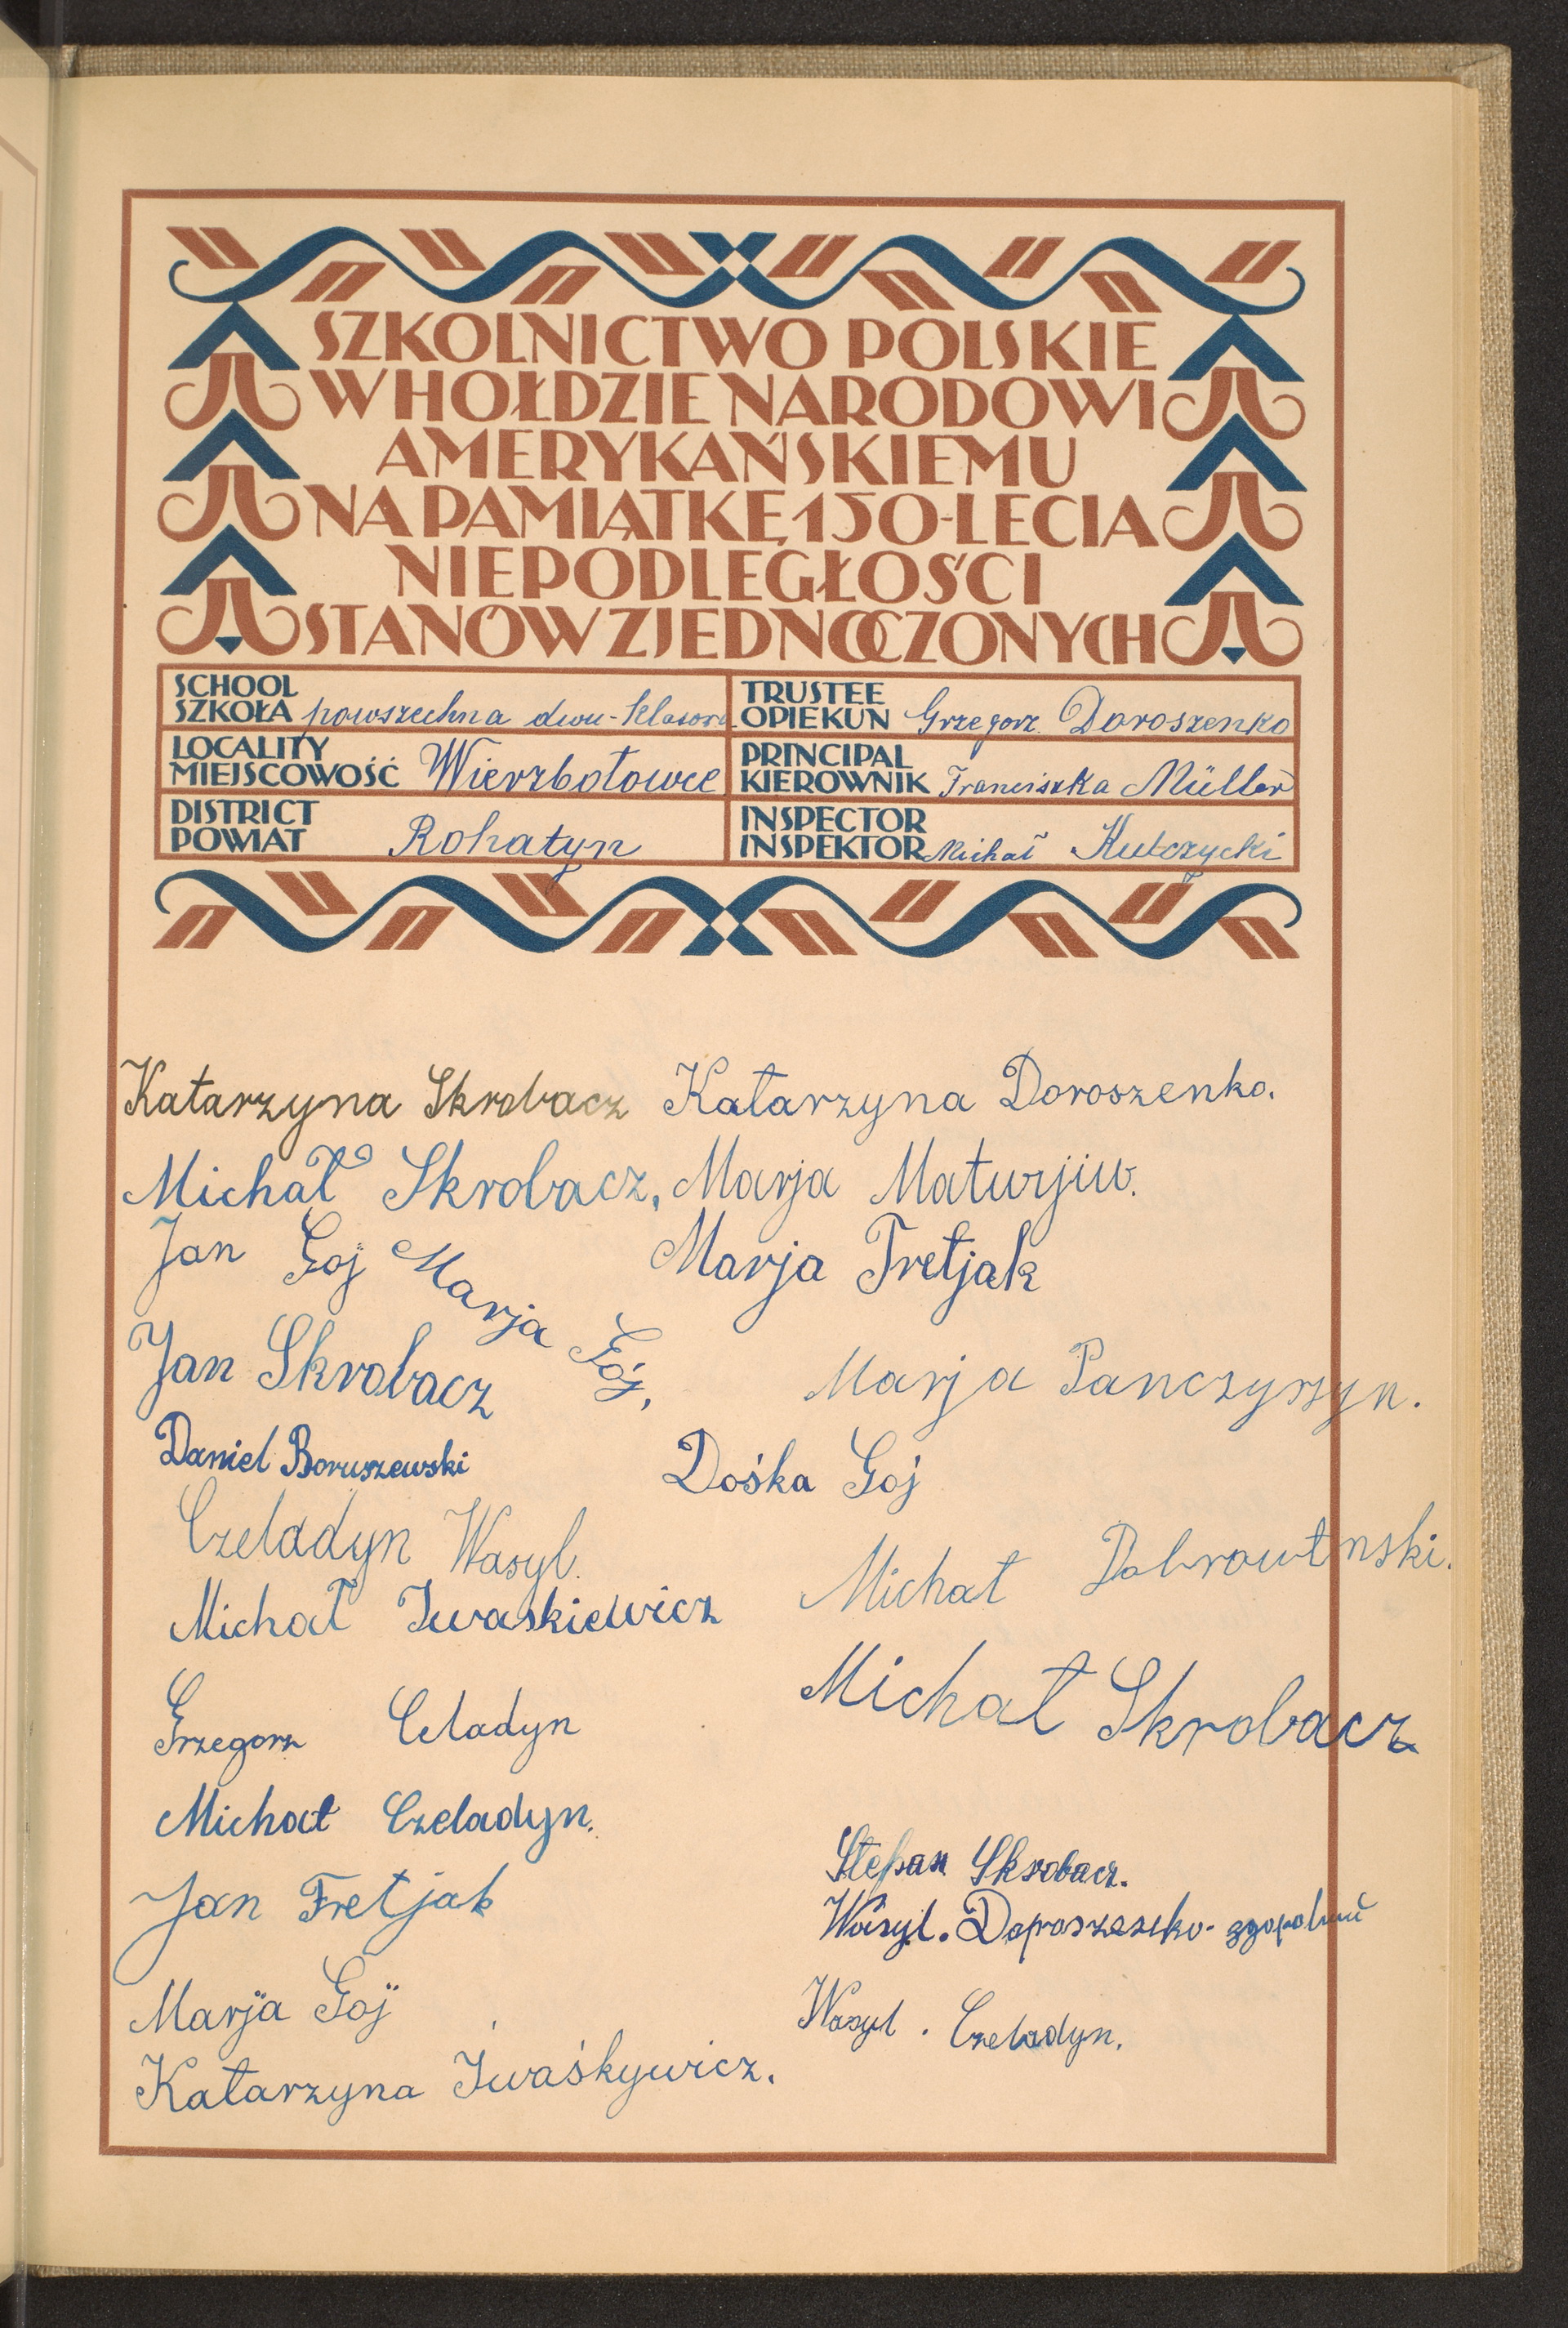 SZKOLNICTWO POLSKIE
W HOŁDZIE NARODOWI
AMERYKAŃSKIEMU
NA PAMIĄTKĘ 150-LECIA
NIEPODLEGŁOŚCI
STANÓW ZJEDNOCZONYCH
SCHOOL
SZKOŁA powszechna dwu-klasowa
LOCALITY
MIEJSCOWOŚĆ Wierzbołowce
DISTRICT
POWIAT Rohatyn
TRUSTEE
OPIEKUN Grzegorz Doroszenko
PRINCIPAL
KIEROWNIK Franciszka Müller
INSPECTOR
INSPEKTOR Michał Kulczycki
Katarzyna Skrobacz Katarzyna Doroszenko.
Michał Skrobacz, Marja Maturjiw.
Jan Goj Marja Gój, Marja Tretjak
Jan Skrobacz Marja Panczyszyn.
Daniel Boruszewski Dośka Goj
Czeladyn Wasyl.
Michał Iwaskiewicz Michał
Grzegorz Celadyn Michał Skrobacz
Michał Czeladyn.
Jan Tretjak
Stepan Skrobacz.
Wasyl. Doroszenko
Marja Goj
Wasyl. Czeladyn.
Katarzyna Iwaśkywicz.